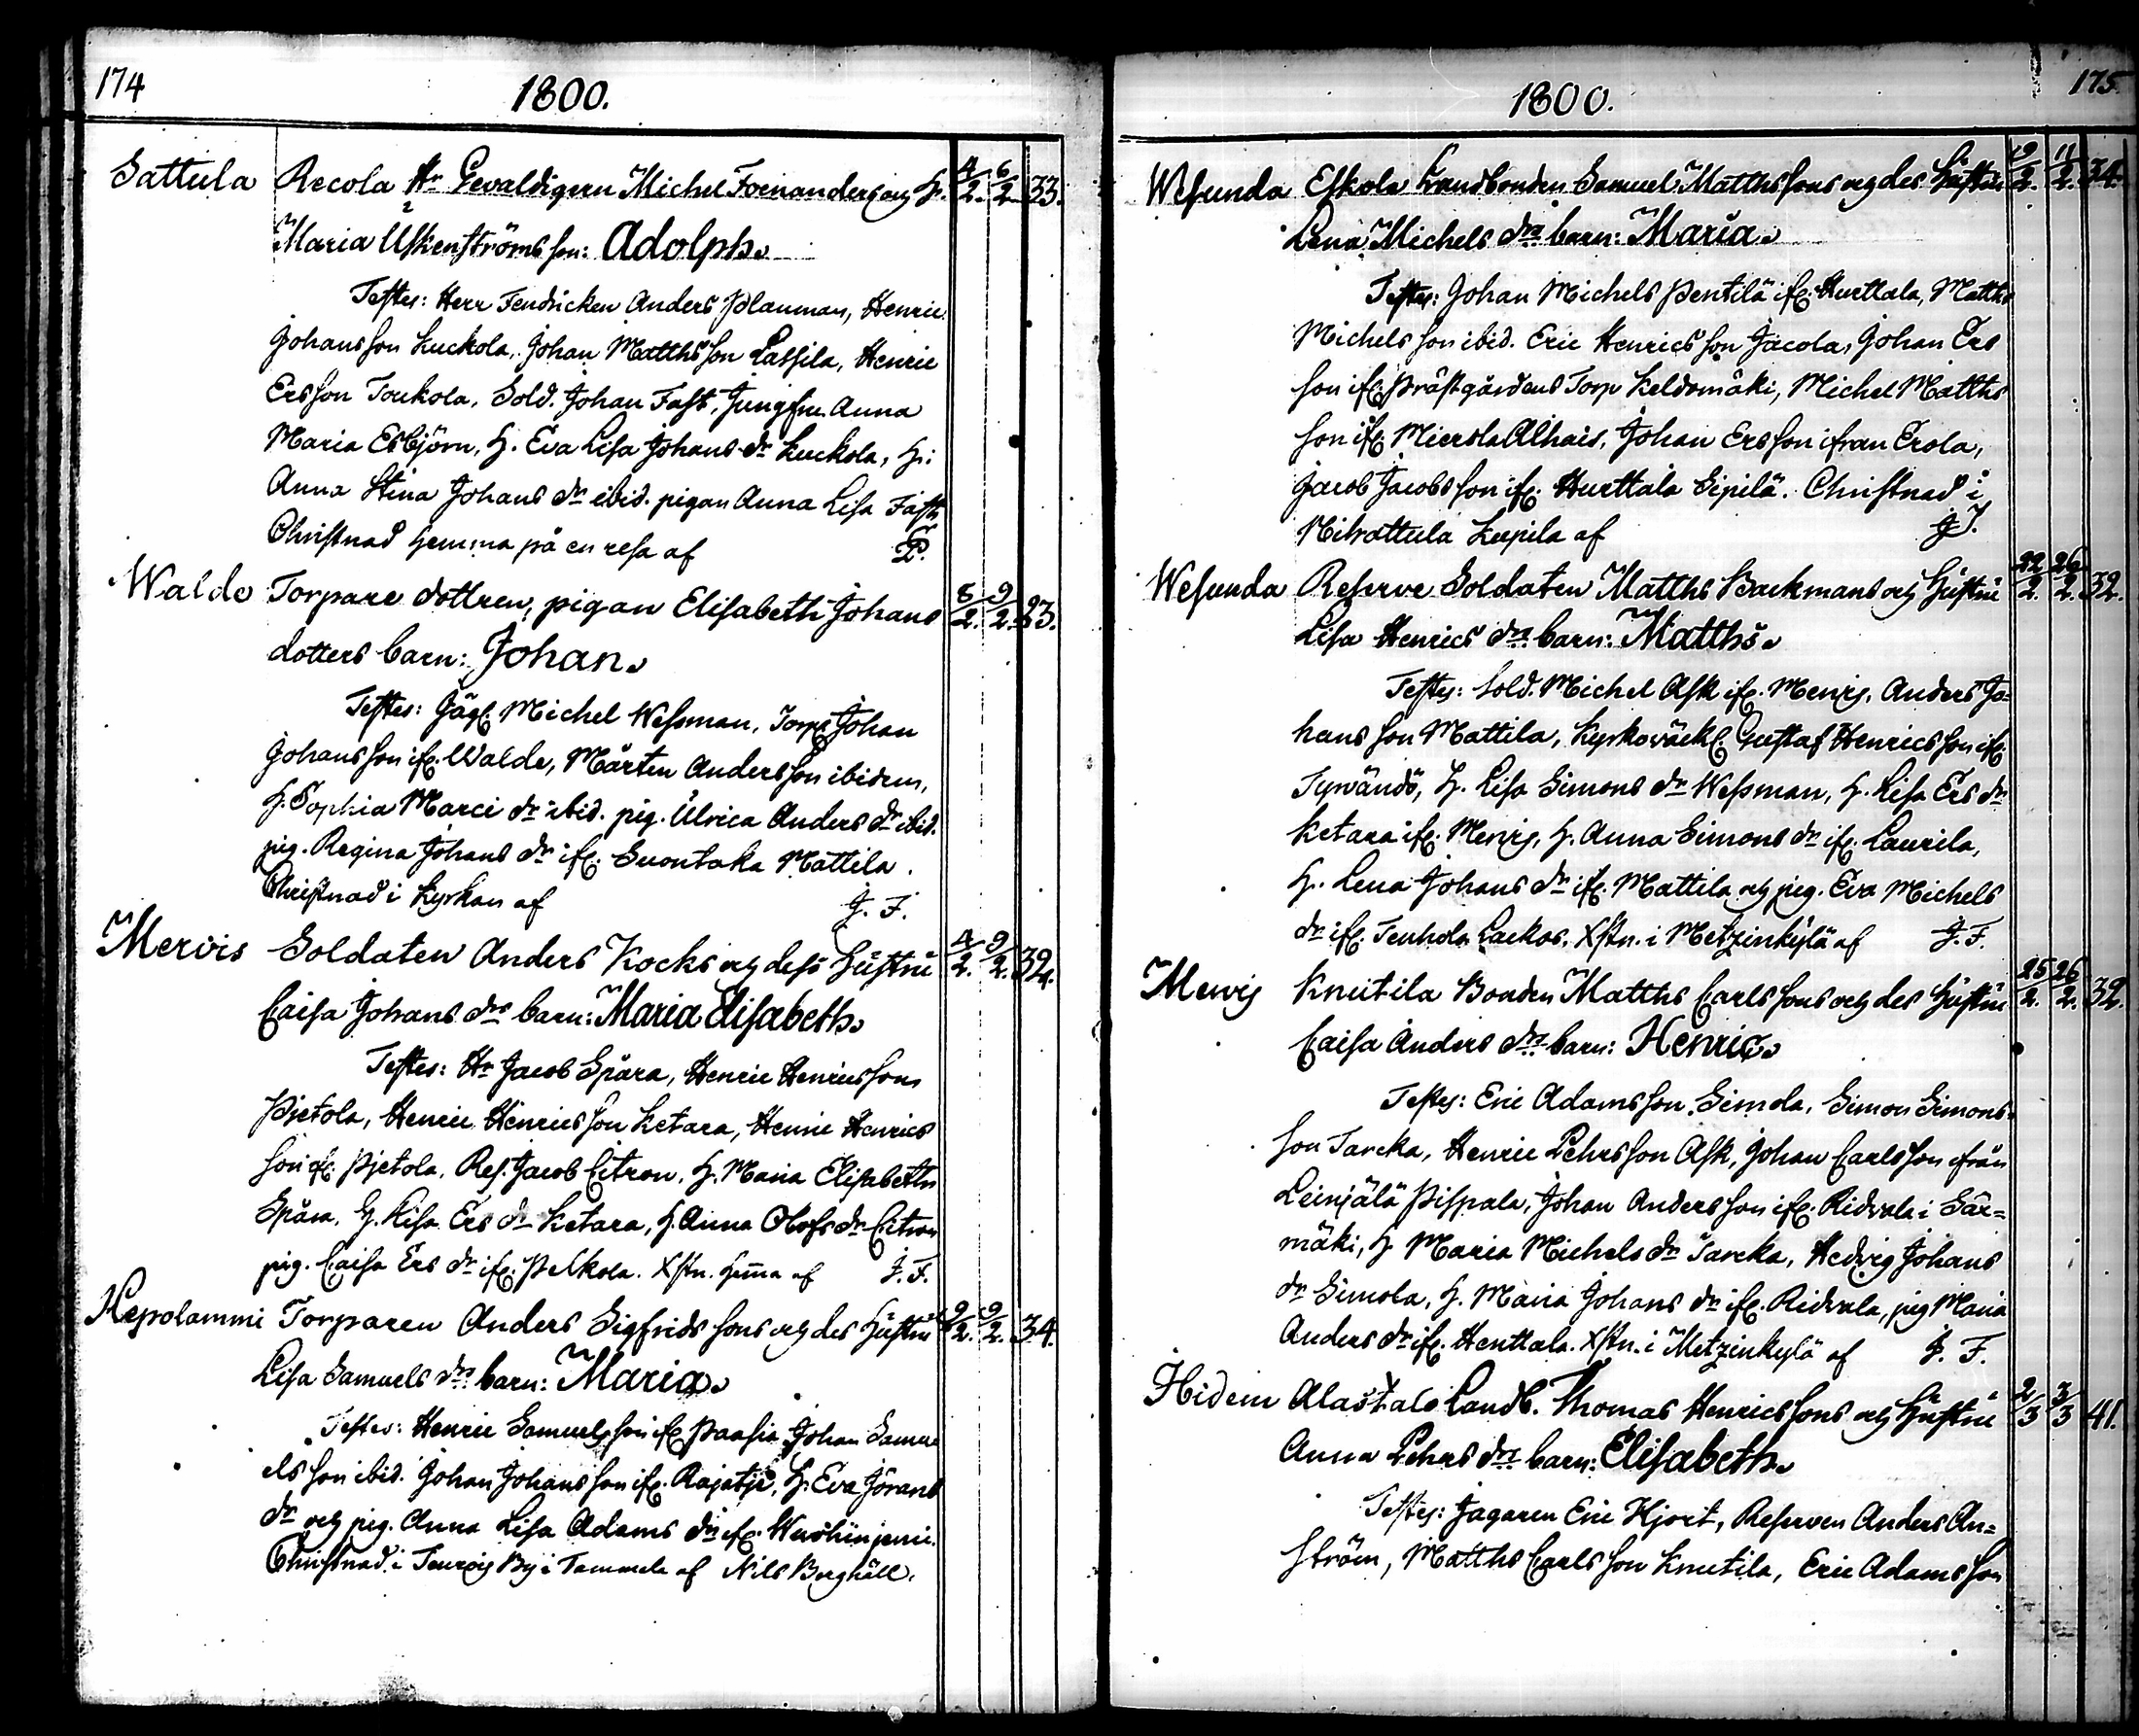 174
1800.
Sattula Recola Hr Gevaldigern Michel Foenanders och H. 4/2. 6/2. 33.
Maria Uskenströms son: Adolph.
Testes: Herr Fendricken Anders Planman, Henric
Johansson Kuckola, Johan Matthsson Lassila, Henric
Ersson Toukola, Sold. Johan Fast, Jungfru Anna
Maria Esbjörn, H. Eva Lisa Johans dr Kuckola, H:
Anna Stina Johans dr ibid. pigan Anna Lisa Fast
Christnad hemma på en resa af
Walde Torpare dottren, pigan Elisabeth Johans 8/2. 9/2. 23.
dotters barn: Johan.
Testes: Jägl. Michel Wessman, Torp. Johan
Johansson ifr. Walde, Mårten Andersson ibidem,
H. Sophia Marci dr ibid. pig. Ulrica Anders dr ibid.
pig. Regina Johans dr ifr. Suontaka Mattila.
Christnad i Kyrkan af J. F.
Mervis Soldaten Anders Kocks och dess Hustru 4/2. 9/2. 32.
Caisa Johans drs barn: Maria Elisabeth.
Testes: Hr Jacob Spåra, Henric Henricsson
Pietola, Henric Henricsson Ketara, Henric Henrics
son ifr. Pietola, Res. Jacob Citron, H. Maria Elisabeth
Spåra, H. Lisa Ers dr Ketara, H. Anna Olofs dr Citron
pig. Caisa Ers dr ifr. Pelkola. Xstn. hema af J. F.
Hepolammi Torparen Anders Sigfridssons och des Hustru 9/2. 9/2. 34.
Lisa Samuels drs barn: Maria.
Testes: Henric Samuelsson ifr. Paasia Johan Samu
elsson ibid. Johan Johansson ifr. Rajatje, H. Eva Jörans
dr och pig. Anna Lisa Adams dr ifr.
Christnad i By i Tammela af Nils Berghäll.
175
1800.
Wesunda Eskola Landbonden Samuel Matthssons och des Hustru 10/2. 11/2. 34.
Lena Michels drs barn: Maria.
Testes: Johan Michels Pentilä ifr. Hurttala, Matths
Michelsson ibid. Eric Henricsson Jacola, Johan Ers
son ifr. Prästgårdens Torp Keldomäki, Michel Matths
son ifr. Mierola Alhais, Johan Ersson ifran Erola,
Jacob Jacobsson ifr. Hurttala Sipilä. Christnad i
Mihattula Kepila af
Wesunda Reserve Soldaten Matths Backmans och Hustru 22/2. 26/2. 32.
Lisa Henrics drs barn: Matths.
Testes: Sold. Michel Ask ifr. Mervis, Anders Jo=
hansson Mattila, Kyrkoväckt. Gustaf Henricsson ifr.
Tyrvändö, H. Lisa Simons dr Wessman, H. Lisa Ers dr
Ketara ifr. Mervis, H. Anna Simons dr ifr. Laurila,
H. Lena Johans dr ifr. Mattila och pig. Eva Michels
dr ifr. Tenhola Lackos. Xstn. i Metzinkylä af J. F.
Mervis Knutila Bonden Matths Carlssons och des Hustru 25/2. 26/2. 32.
Caisa Anders drs barn: Henric.
Testes: Eric Adamsson Simola, Simon Simons=
son Tarcka, Henric Pehrsson Ask, Johan Carlsson ifrån
Leinjälä Pispala, Johan Andersson ifr. Ridvala i Sär=
mäki, H. Maria Michels dr Tarcka, Hedvig Johans
dr Simola, H. Maria Johans dr ifr. Ridvala, pig Maria
Anders dr ifr. Henttala. Xstn. i Metzinkylä af J. F.
Hidem Alastalo Landb. Thomas Henricssons och Hustru 2/3 3/3 41.
Anna Pehrs drs barn: Elisabeth.
Testes: Jagaren Eric Hjort, Reserven Anders An=
ström, Matths Carlsson Knutila, Eric Adamsson